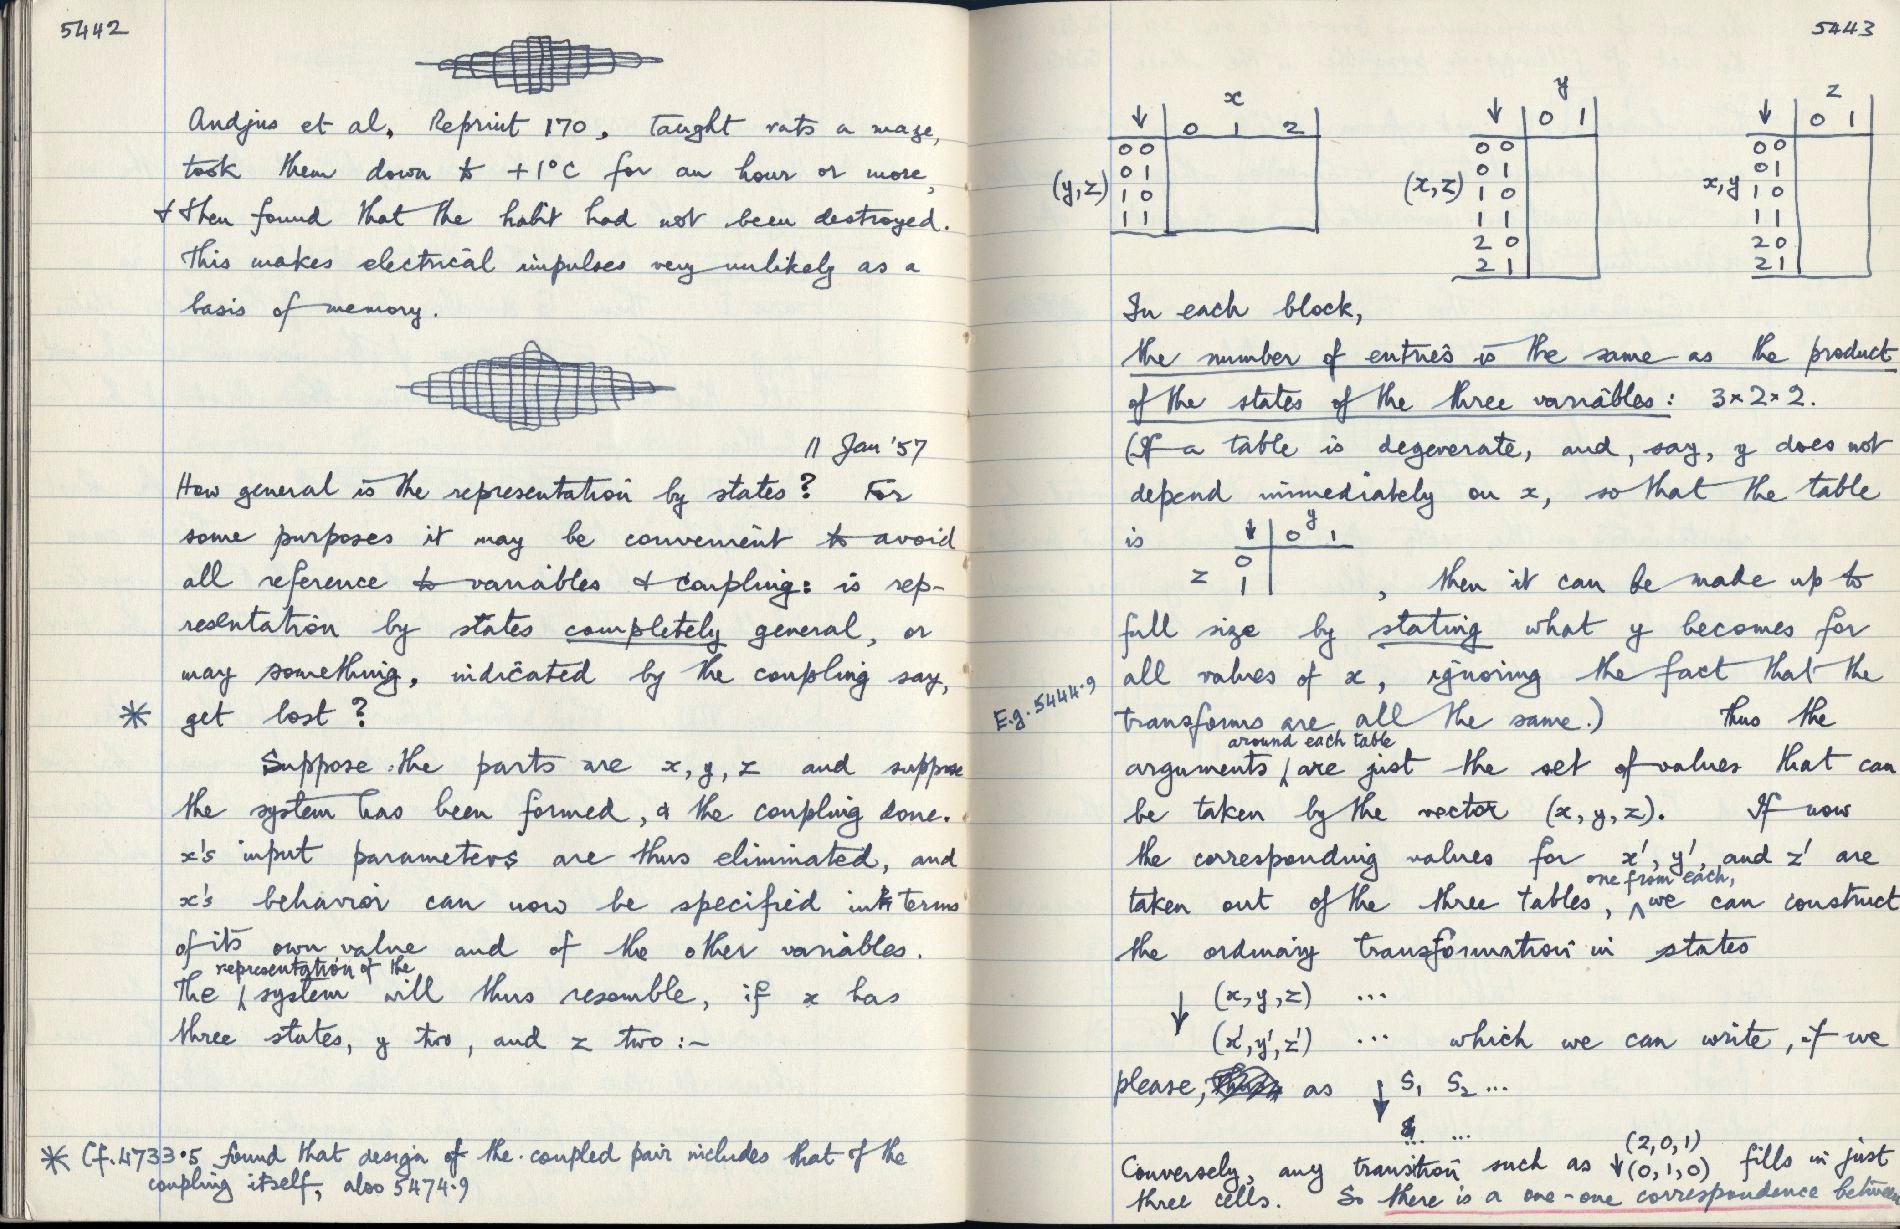 5442
Andjus et al, Reprint 170, taught rats a maze,
took them down to +1°C for an hour or more,
& then found that the habit had not been destroyed.
This makes electrical impulses very unlikely as a
basis of memory.
11 Jan '57
How general is the representation by states? For
some purposes it may be convenient to avoid
all reference to variables & coupling: is rep-
resentation by states completely general, or
may something, indicated by the coupling say,
* get lost?
Suppose the parts are x, y, z and suppose
the system has been formed, & the coupling done.
x's input parameters are thus eliminated, and
x's behavior can now be specified in terms
of its own value and of the other variables.
representation of the
The system will thus resemble, if x has
three states, y two, and z two :-
* Cf. 4733.5 found that design of the coupled pair includes that of the
coupling itself, also 5474.9
5443
x y z
↓ 0 1 2 ↓ 0 1 ↓ 0 1
00 00 00
01 01 01
(y,z) 10 (x,z) 10 x,y 10
11 11 11
20 20
21 21
In each block,
the number of entries is the same as the product
of the states of the three variables: 3×2×2.
(If a table is degenerate, and, say, y does not
depend immediately on x, so that the table
is ↓ 0 y 1
0
z 1 , then it can be made up to
full size by stating what y becomes for
all values of x, ignoring the fact that the
E.g. 5444.9
transforms are all the same.) Thus the
around each table
arguments are just the set of values that can
be taken by the vector (x, y, z). If now
the corresponding values for x', y', and z' are
one from each,
taken out of the three tables, we can construct
the ordinary transformation in states
↓ (x, y, z) ...
(x', y', z') ... which we can write, if we
please, as ↓ S₁ S₂ ...
... ...
(2,0,1)
Conversely, any transition such as ↓ (0,1,0) fills in just
three cells. So there is a one-one correspondence between